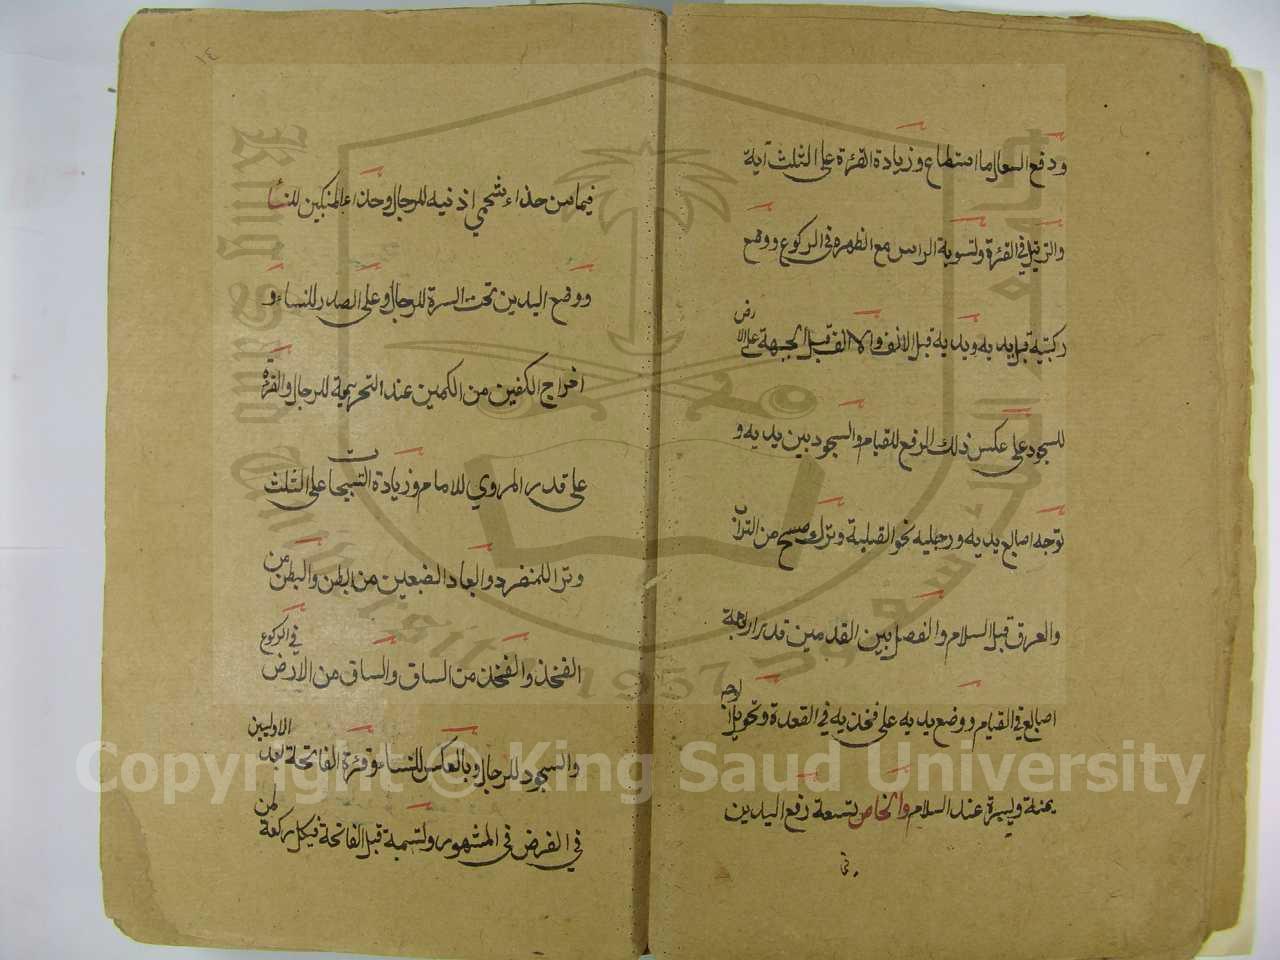 ودفع السعال ما استطاع وزيادة القرءة على الثلث آية
والترتيل في القرءة وتسوية الراس مع الظهره في الركوع ووضع
ركبتيه قبل يديه ويديه قبل الانف والانف قبل الجبهة على الارض
للسجود على عكس ذلك الرفع للقيام والسجود بين يديه و
توجه اصابع يديه ورجليه نحو القبلة وترك مسح من التراب
والعرق قبل السلام والفصل بين القدمين قدر اربعة
اصابع في القيام ووضع يديه على فخذيه في القعدة وتحويل الوجه
يمنة ويسرة عند السلام والخاص تسعة رفع اليدين
١٤
فيما من حذاء شحمي اذنيه للرجال وحذاء المنكبين للنساء
ووضع اليدين تحت السرة للرجال وعلى الصدر للنساء و
افراج الكفين من الكمين عند التحريمة للرجال والقرءة
على قدر المروي للامام وزيادة التسبيحات على الثلث
وترا للمنفرد وابعاد الضبعين من البطن والبطن من
الفخذ والفخذ من الساق والساق من الارض في الركوع
والسجود للرجال وبالعكس للنساء وقرءة الفاتحة بعد الاوليين
في الفرض في المشهور وتسمية قبل الفاتحة في كل ركعة لمن
Copyright © King Saud University
King Saud University
جامعة الملك سعود
1957